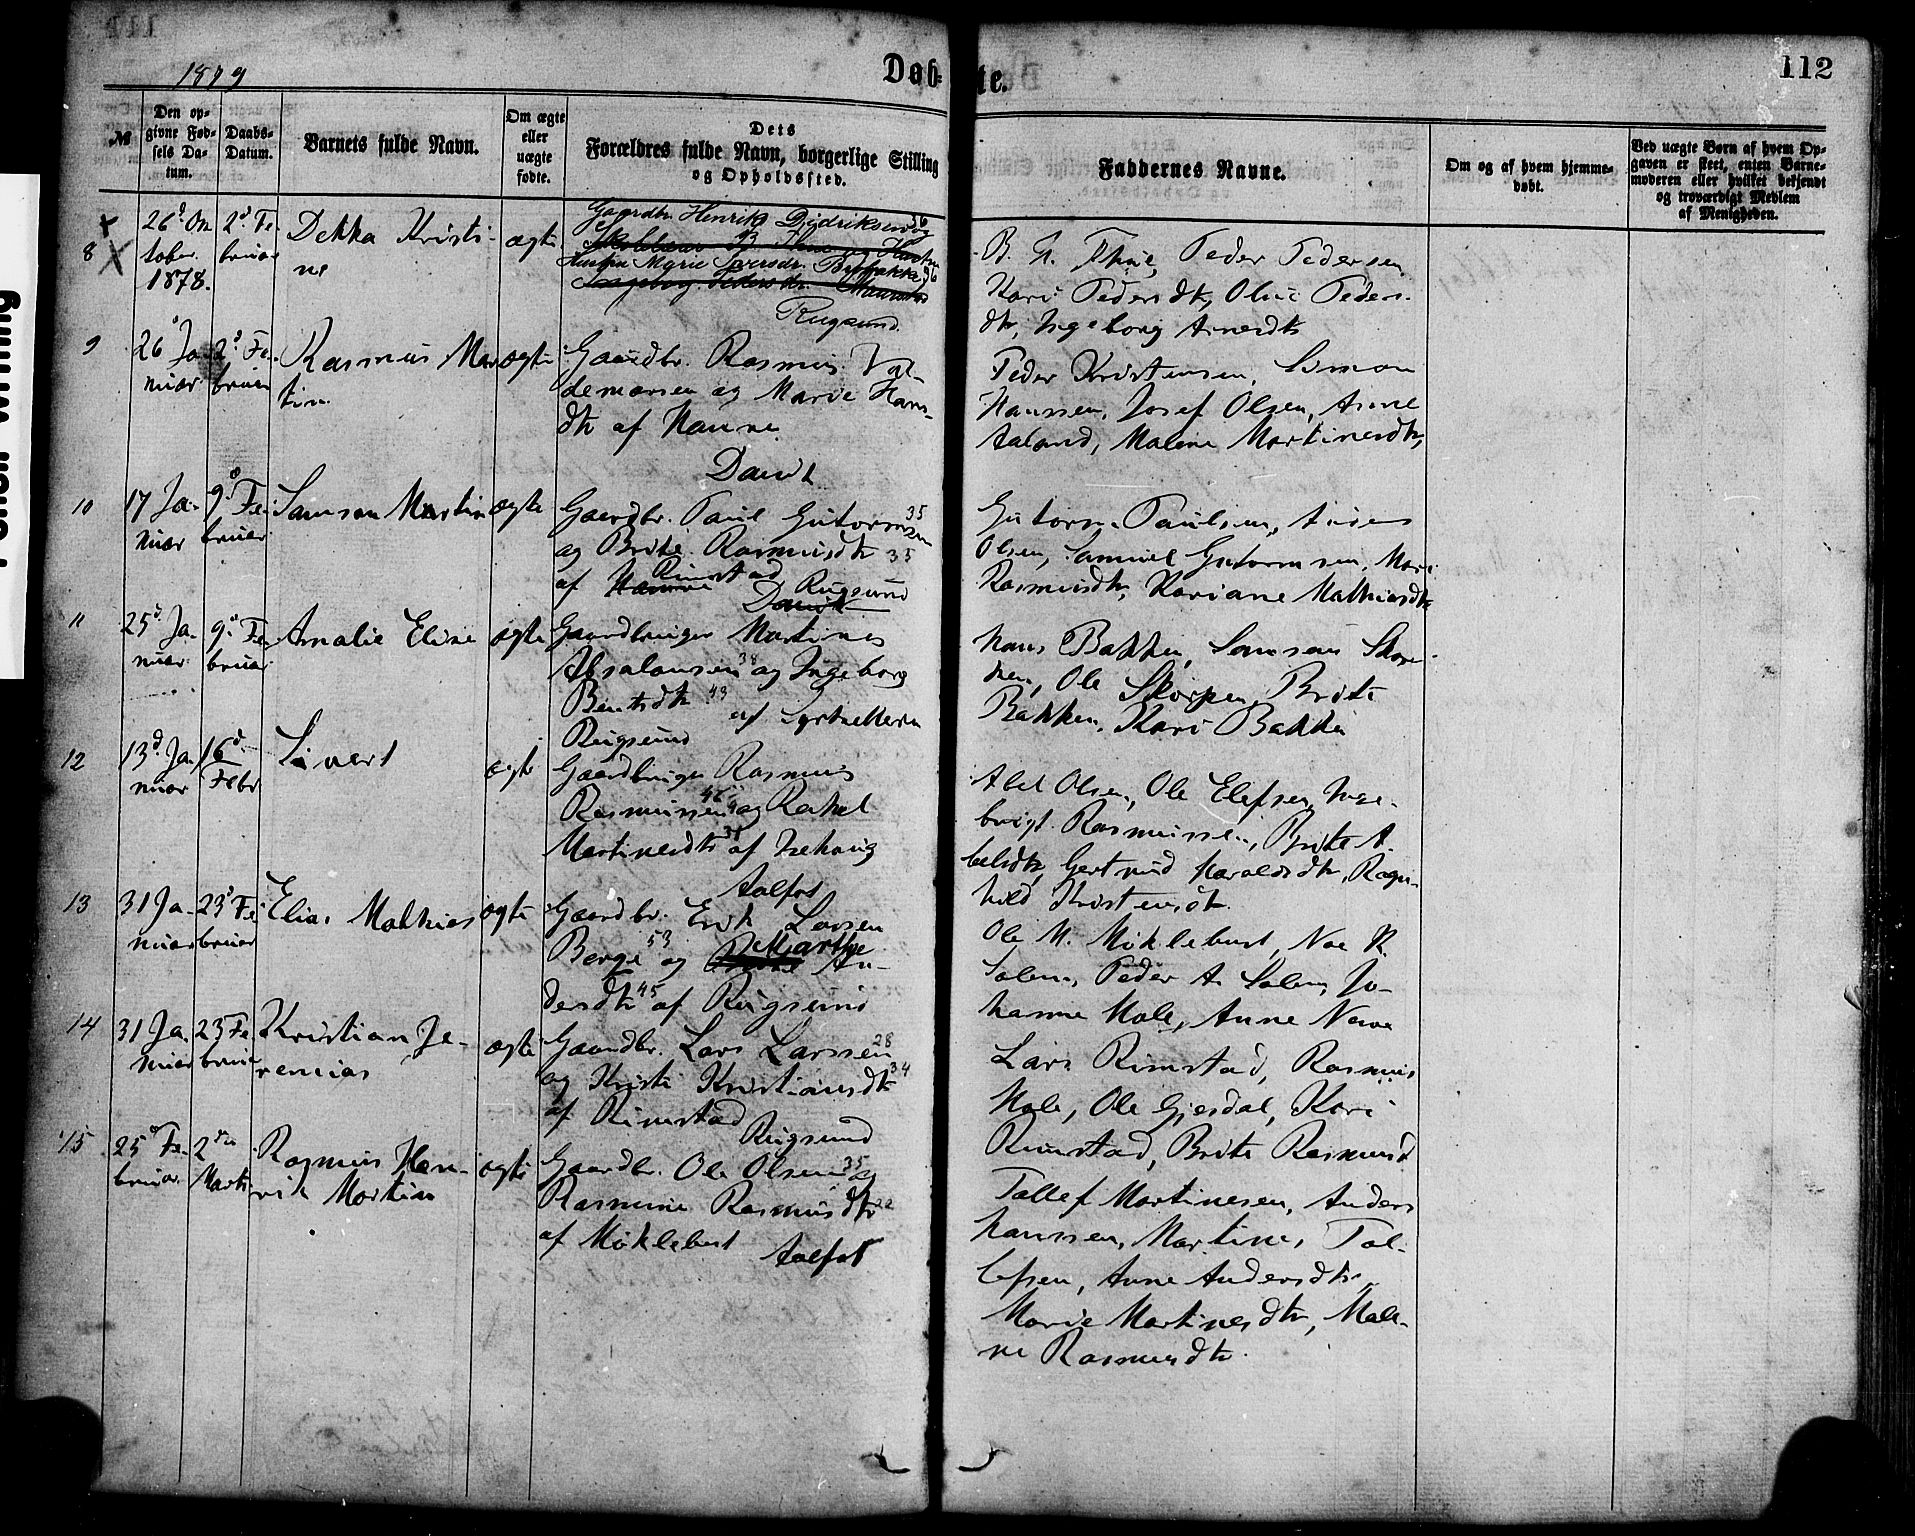 112
1879
Døb-
te.
№
Den op-
givne Fød-
sels Da-
tum.
Daabs-
Datum.
Barnets fulde Navn.
Om ægte
eller
uægte
fødte.
Dets
Forældres fulde Navn, borgerlige Stilling
og Opholdssted.
Faddernes Navne.
Om og af hvem hjemme-
døbt.
Ved uægte Børn af hvem Op-
gaven er skeet, enten Barne-
moderen eller hvilket bekjendt
og troværdigt Medlem
af Menigheden.
8
26d Ok
tober
1878.
2d Fe
bruar
Dekka Kristi-
ne
ægte
Gaardbr. Henrik Didriksen og 36
Hustru Marie Iversdr. 36
Ingeborg Pedersdr.
Rugsund.
B. A. Peder Pedersen
Kari Pedersdtr, Oline Peders-
dtr, Ingeborg Arnesdtr
9
26d Ja
nuar
2d Fe
bruar
Rasmus Mar
tin
ægte
Gaardbr. Rasmus Val-
demarsen og Marie Hans-
dtr af Havne
Davik
Peder Kristensen, Simon
Hanssen, Josef Olsen, Anne
Aaland, Malene Martinesdtr,
10
17 Ja-
nuar
9d Fe
bruar
Samson Martin
ægte
Gaardbr. Paul Gutormsen 35
og Brite Rasmusdtr 35
af Havne Rimstad Rugsund
Davik
Gutorm Paulsen,
Olsen, Samuel Gutormsen, Mari
Rasmusdtr, Kariane Mathiasdtr
11
25d Ja-
nuar
9d Fe
bruar
Amalie Elise
ægte
Gaardbruger Martines
Absalonsen 38 og Ingeborg
Bentsdtr 43 af
Rugsund
Hans Bakken, Samson Skor-
pen, Ole Skorpen, Brite
Bakken, Kari Bakken
12
13d Ja
nuar
16d
Febr
Sivert
ægte
Gaardbruger Rasmus
Rasmussen 46 og Rakel
Martinesdtr af Isehavig
Aalfot
Abel Olsen, Ole Elefsen, Inge-
brigt Rasmussen, Brite A-
belsdtr, Gertrud Haraldsdtr, Ragn-
hild Kristensdtr.
13
31 Ja-
nuar
23d Fe
bruar
Elias Mathias
ægte
Gaardbr. Erik Larsen
Berge 53 og Marthe An-
dersdtr 45 af Rugsund
Ole M. Myklebust, Noe R
Salen, Peder A. Salen, Jo-
hanne Hole, Anne Nave
14
31 Ja.
nuar
23 Fe.
bruar
Kristian Je-
remias
ægte
Gaardbr. Lars Larssen 28
og Kristi Kristiansdtr 34
af Rimstad
Rugsund
Lars Rimstad, Rasmus
Hole, Ole Gjesdal, Kari
Rimstad, Brite Rasmusd
15
25d Fe-
bruar.
2den
Marts
Rasmus Hen-
rik Martin
ægte
Gaardbr. Ole Olsen 35 og
Rasmine Rasmusdtr 22
af Myklebust
Aalfot
Tollef Martinesen, Anders
Hanssen, Martines Tol-
lefsen, Anne Andersdtr,
Marie Martinesdtr, Male-
ne Rasmusdtr.